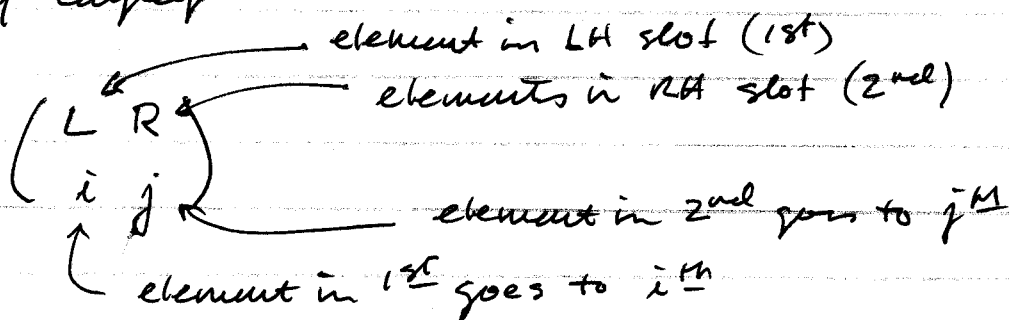 element in LH slot (1st)
elements in RH slot (2nd)
( L R )
i j
element in 2nd goes to jth
element in 1st goes to ith